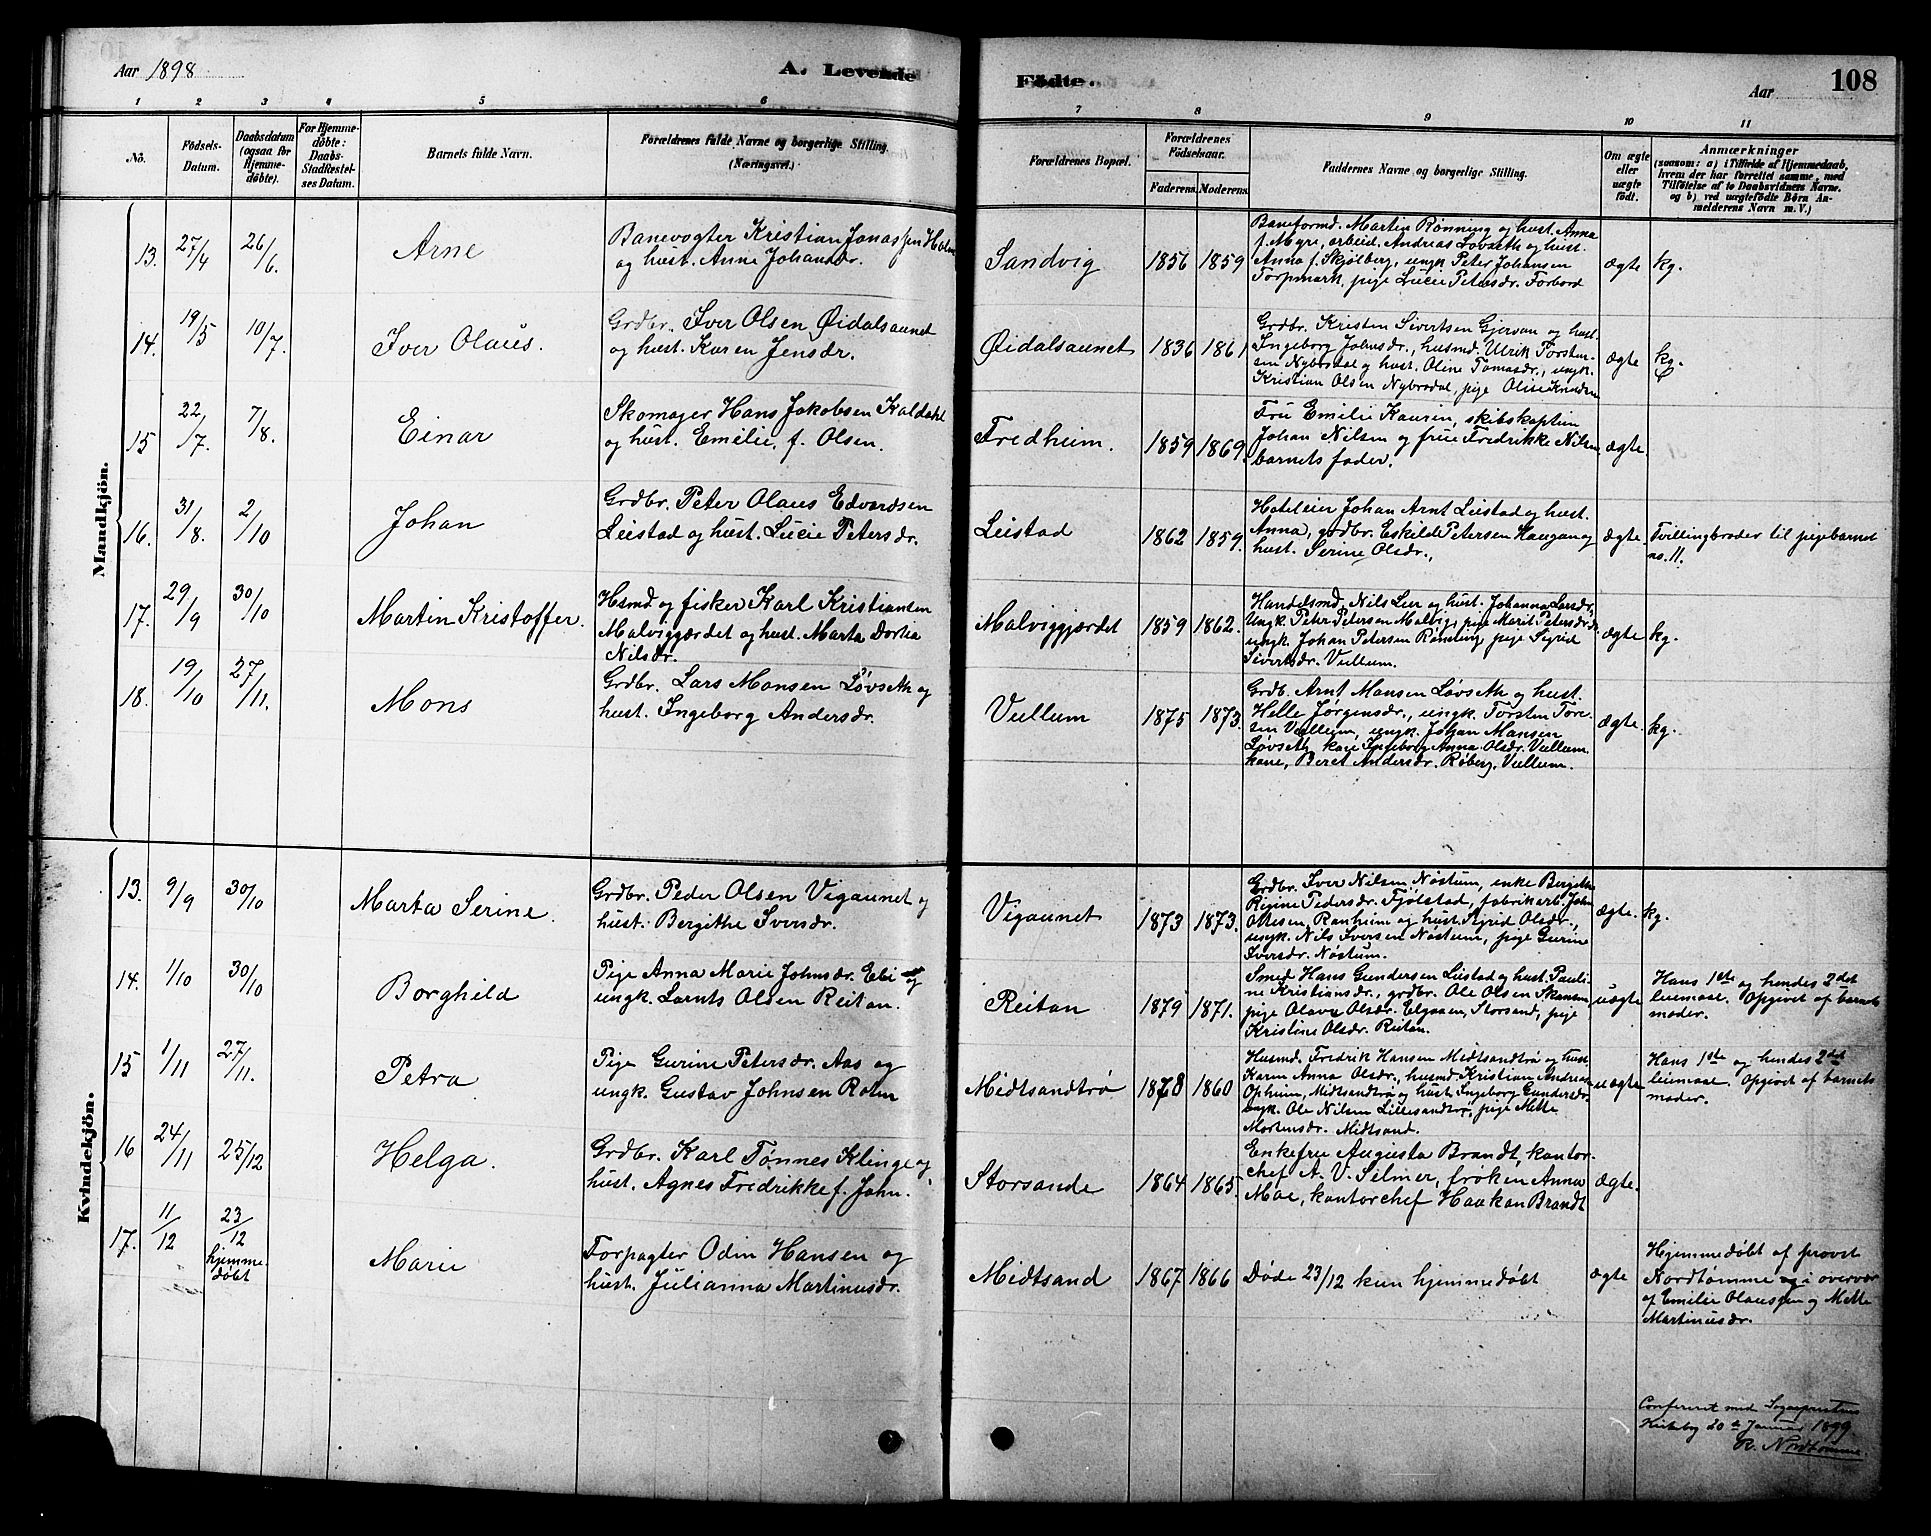 Aar 1898
A. Levende
Födte.
Aar
108
1 2 3 4 5 6 7 8 9 10 11
No.
Födsels-
Datum.
Daabsdatum
(ogsaa for
Hjemme-
döbte).
For Hjemme-
döbte:
Daabs-
Stadfæstel-
ses Datum.
Barnets fulde Navn.
Forældrenes fulde Navne og borgerlige Stilling
(Næringsvei.)
Forældrenes Bopæl.
Forældrenes
Födselsaar.
Faderens. Moderens.
Faddernes Navne og borgerlige Stilling.
Om ægte
eller
uægte
født.
Anmærkninger
(saasom: a) i Tilfælde af Hjemmedaab,
hvem der har forrettet samme, med
Tilföielse af to Daabsvidners Navne.
og b) ved uægtefödte Börn An-
melderens Navn m. V.)
Mandkjön.
13. 27/4 26/6. Arne
Banevogter Kristian Jonassen Holm
og hust. Anne Johansdr.
Sandvig 1856 1859
Baneformd. Martin Rønning og hust. Anna
f. Myr, arbeid. Andreas Løvseth og hust.
Anna f. Skjølberg, ungk. Peter Johansen
Torpmark, pige Lucie Petersdr. Forbord
ægte kg.
14. 19/5 10/7. Iver Olaus.
Grdbr. Iver Olsen Øidalsaunet
og hust. Karen Jensdr.
Øidalsaunet 1836 1861
Grdbr. Kristen Sivertsen Gjervan og hust.
Ingeborg Johnsdr., husmd. Ulrik Torsten-
sen Nybrodal og hust. Oline Tomasdr., ungk.
Kristian Olsen Nybrodal, pige Olise Knudsen
ægte kg.
15 22/7. 7/8. Einar
Skomager Hans Jakobsen Kaldahl
og hust. Emelie, f. Olsen.
Fredheim. 1859 1869.
Fru Emilie Kaurin, skibskaptein
Johan Nilsen og frue Fredrikke Nilsen
barnets fader.
ægte.
16. 31/8. 2/10 Johan
Grdbr. Peter Olaus Edvardsen
Leistad og hust. Lucie Petersdr.
Leistad 1862 1859.
Hoteleier Johan Arnt Leistad og hust.
Anna, grdbr. Eskilde Petersen Haugan og
hust. Serine Olsdr.,
ægte. Tvillingbroder til pigebarnet
no. 11.
17. 29/9 30/10 Martin Kristoffer.
Hsmd og fisker Karl Kristiansen
Malviggjærdet og hust. Marta Dortia
Nilsdr.
Malviggjærdet 1859 1862.
Handelsmd. Nils Leer og hust. Johanna Larsdr,
Ungk. Peter Petersen Malvig, pige Marit Petersdr
ungk. Johan Petersen Rønning, pige Sigrid
Sivertsdr. Vullum.
ægte kg.
18. 19/10 27/11. Mons
Grdbr. Lars Monsen Løvseth og
hust. Ingeborg Andersdr.
Vullum 1875 1873.
Grdb. Arnt Monsen Løvseth og hust.
Helle Jørgensdr., ungk. Torsten Tore-
sen Vullum, ungk. Johan Monsen
Løvseth, kone Ingeborg Anna Olsdr. Vullum
kone, Beret Andersdr. Røberg, Vullum.
ægte. kg.
Kvindekjön.
13. 9/9 30/10 Marta Serine.
Grdbr. Peder Olsen Vigaunet og
hust. Bergithe Iversdr.
Vigaunet 1873 1873.
Grdbr. Iver Nilsen Nøstum, enke Bergitha
Regine Pedersdr. Fjølstad, fabrikarb. John
Ottesen, Ranheim og hust. Sigrid Olsdr.,
ungk. Nils Iversen Nøstum, pige Gurine
Iversdr. Nøstum.
ægte. kg.
14. 1/10 30/10 Borghild
Pige Anna Marie Johnsdr. Ebi og
ungk. Larnts Olsen Reitan.
Reitan 1879 1871.
Smed Hans Gundersen Leistad og hust. Pauli-
ne Kristiansdr., grdbr. Ole Olsen Skansen
pige Olava Olsdr. Elgaaen, Storsand, pige
Kristine Olsdr. Reitan.
uægte Hans 1ste og hendes 2det
leiemaal. Opgivet af barnets
moder.
15 1/11 27/11. Petra
Pige Gurine Petersdr. Aas og
ungk. Gustav Johnsen Rotm
Midtsandtrø 1878 1860
Husmd. Fredrik Hansen Midtsandtrø og hust
Karen Anna Olsdr., husmd Kristian Andreas
Opheim, Midtsandtrø og hust. Ingeborg Gundersdr,
ungk. Ole Nilsen Lillesandtrø, pige Mette
Mortensdr. Midtsand.
uægte Hans 1ste og hendes 2det
leiemaal. Opgivet af barnets
moder.
16 24/11 25/12 Helga.
Grdbr. Karl Tønnes Klinge og
hust. Agnes Fredrikke f. John.
Storsande 1864 1865.
Enkefrue Augusta Brandt, kontor-
chef A. V. Selmer, frøken Anna
Moe, kontorchef Haakan Brandt
ægte.
17. 11/12 23/12
hjemme
døbt
Marie
Forpagter Odin Hansen og
hust. Julianna Martinusdr.
Midtsand 1867 1866 Døde 23/12 kun hjemmedøbt ægte
Hjemmedøbt af provst
Nordtømme i overvær
af Emilie Olaussen og Mette
Martinusdr.
Confereret med Sognepresten
Kirkeby 20de Januar 1899
R. Nordtømme.